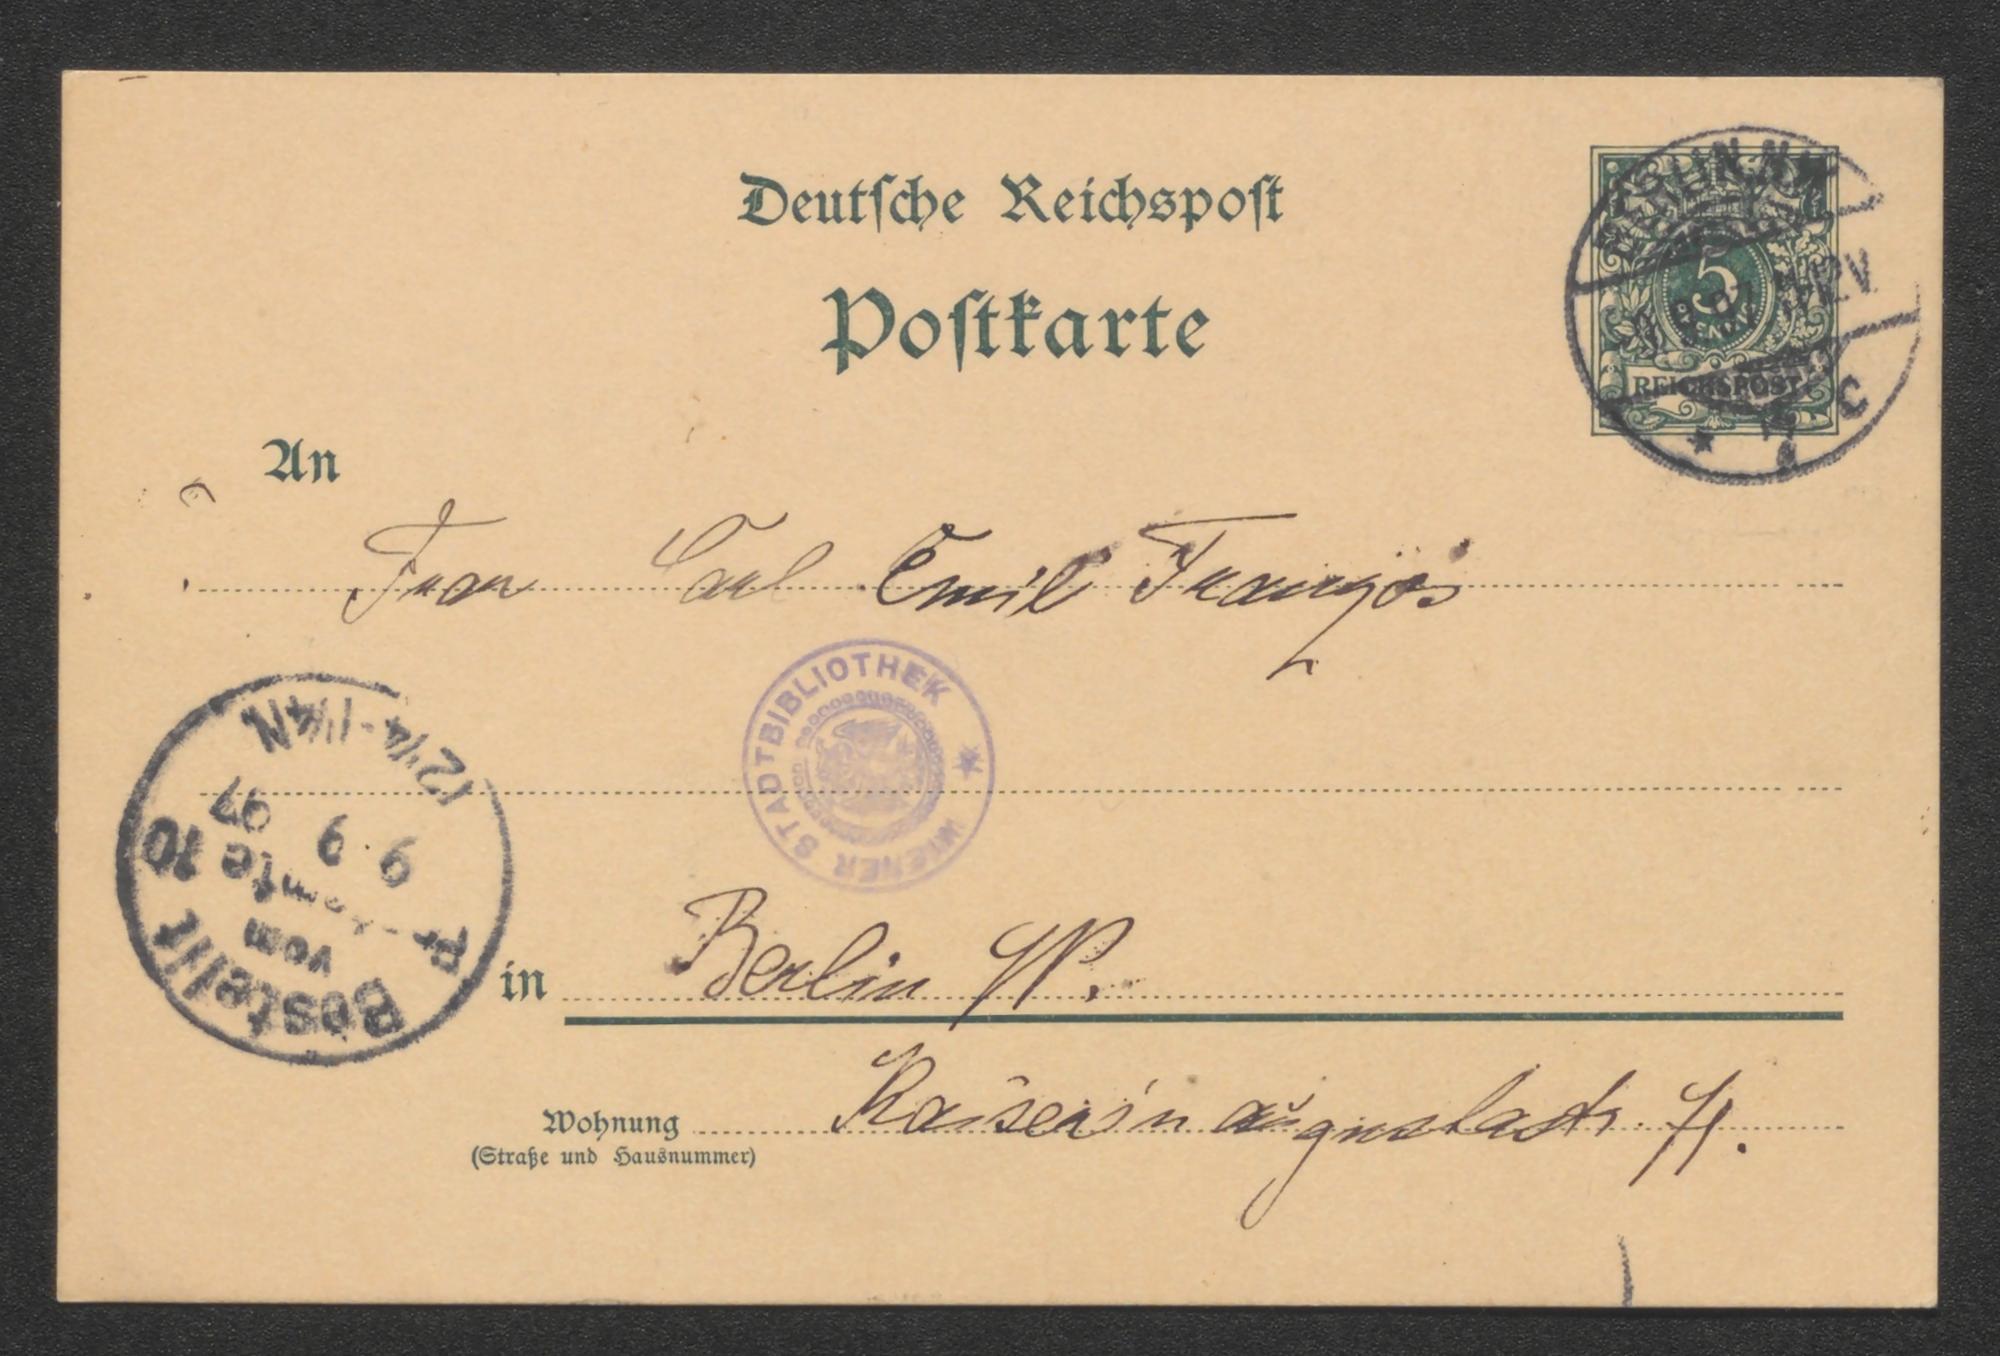 Deutsche Reichspost
Postkarte
5
PFENNIG
REICHSPOST
BERLIN N.W.
12V
* C
An
Frau Carl Emil Franzos
WIENER STADTBIBLIOTHEK *
Bestellt
vom
Postamte 10
9 9 97
12¼-1¼N
in Berlin W.
Wohnung Kaiserin Augustastr. 71.
(Straße und Hausnummer)